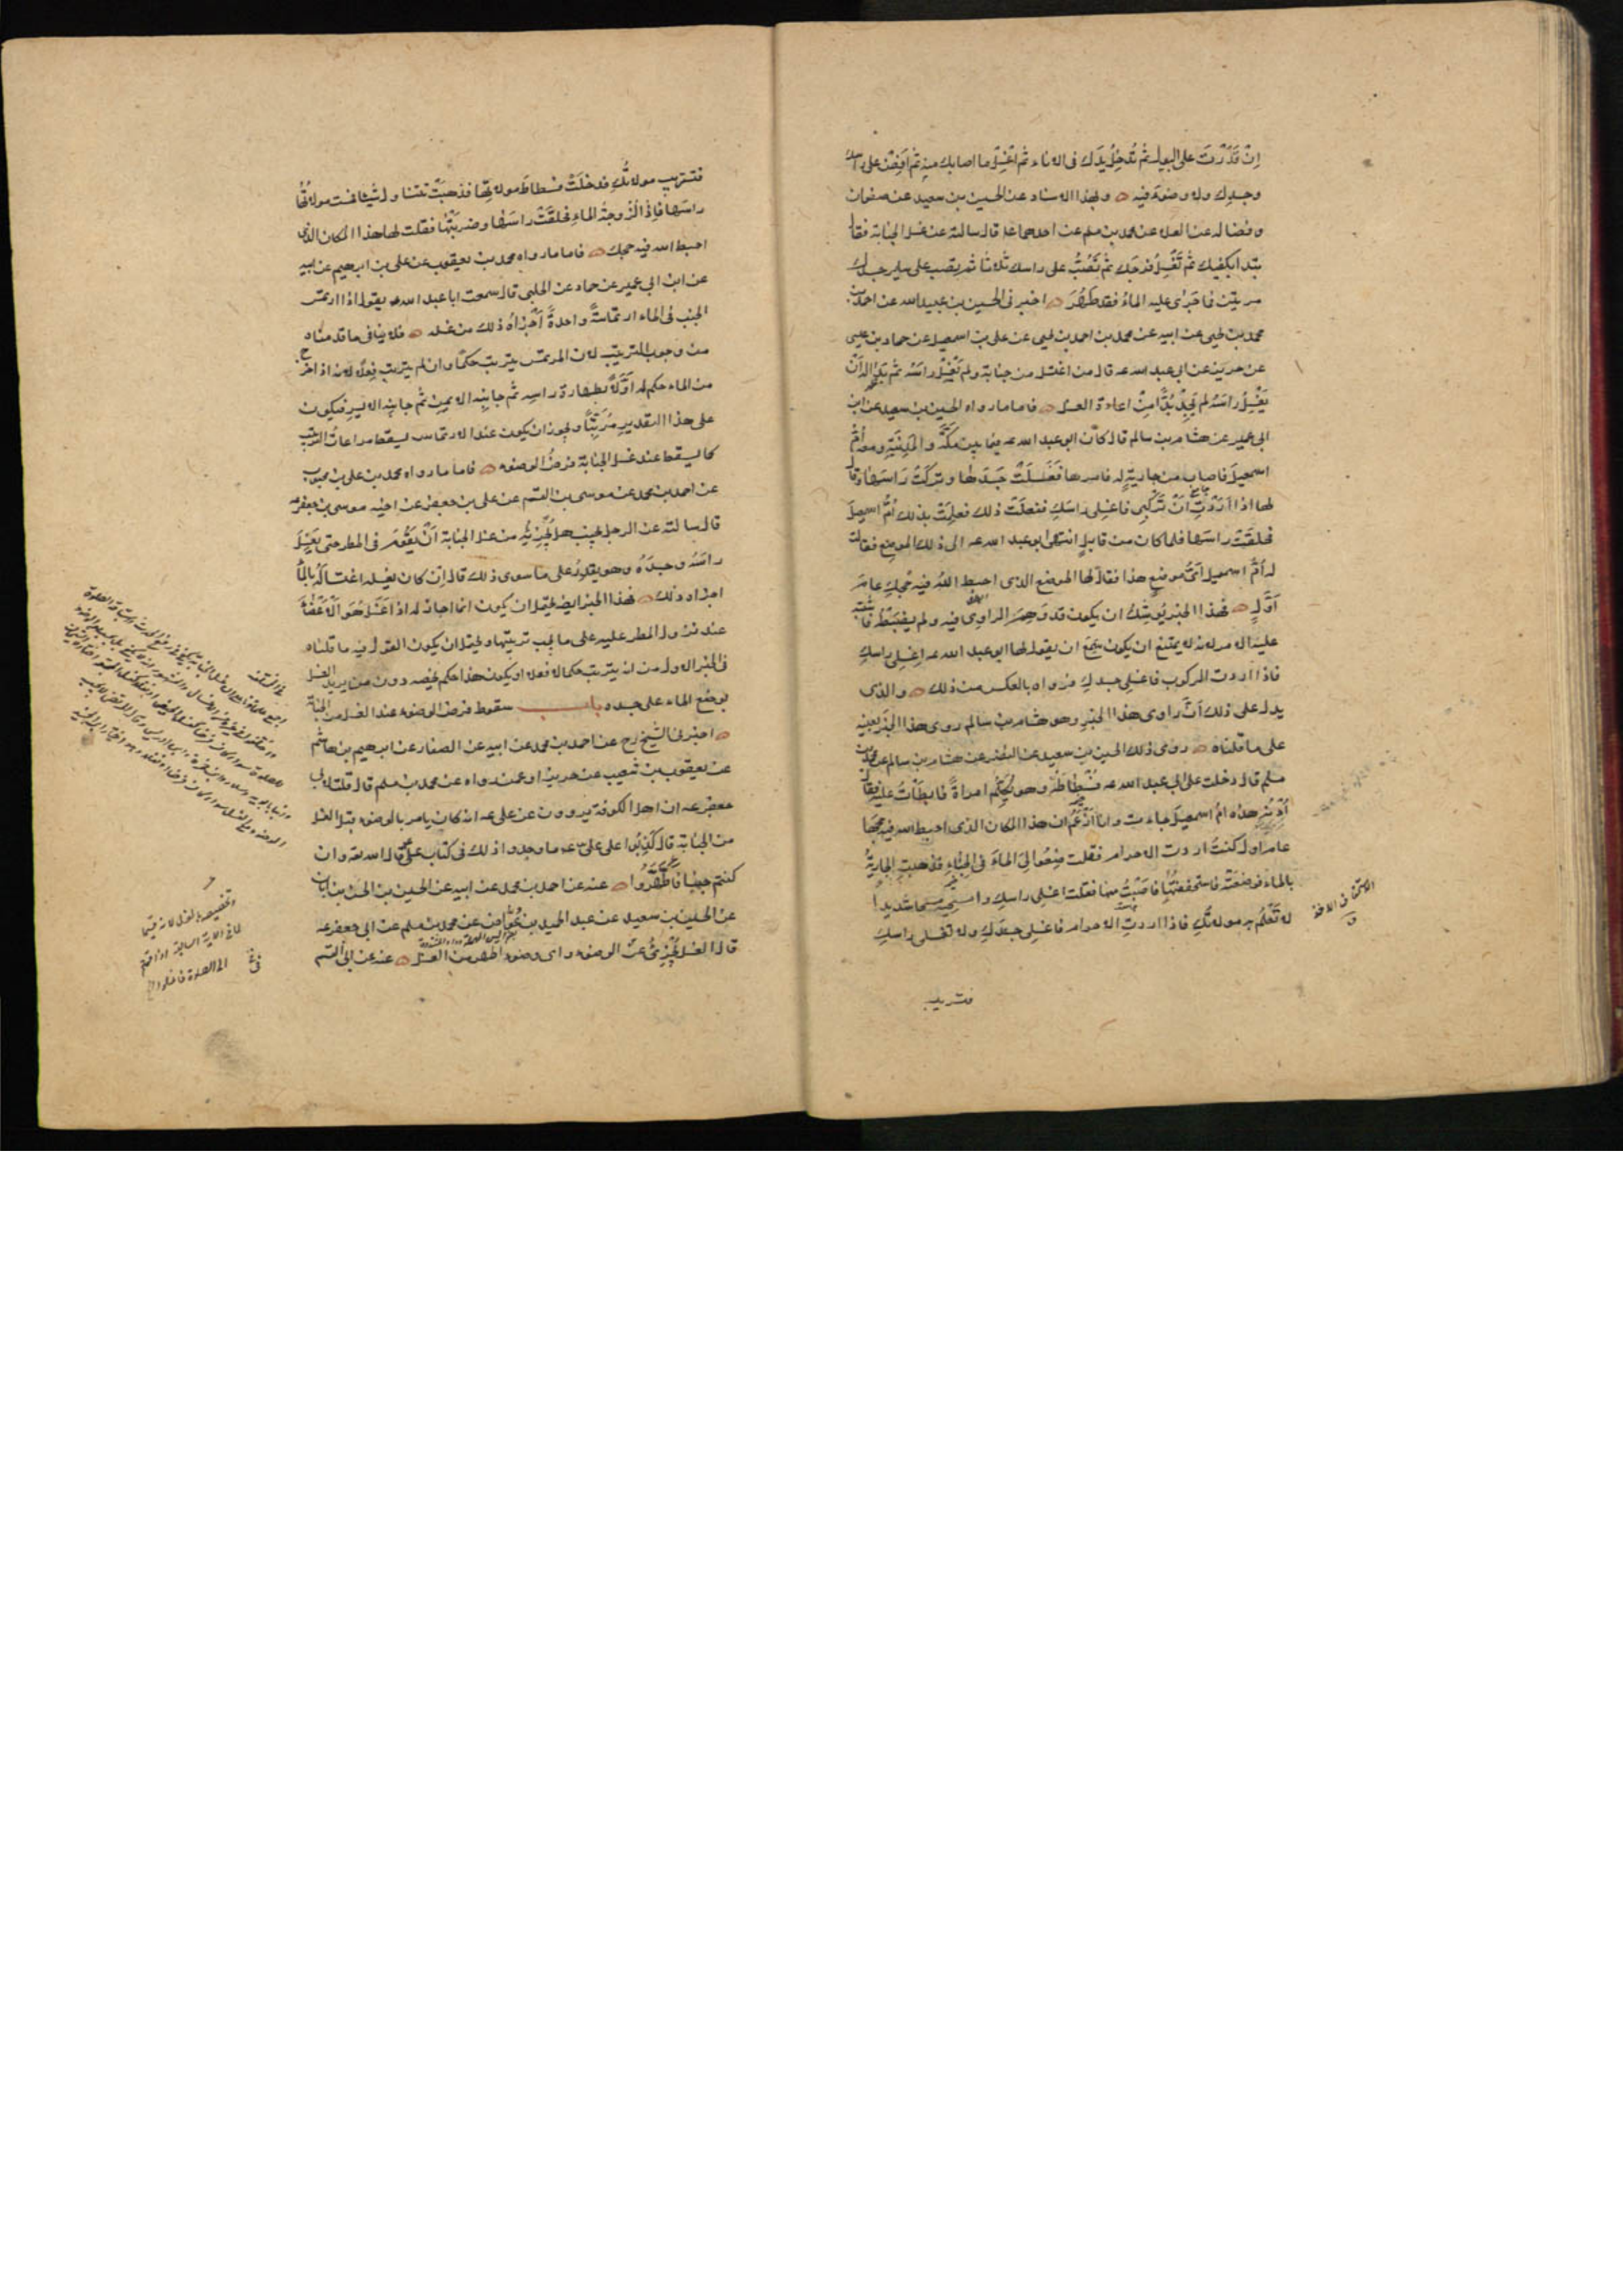 اِنْ قَدَرْتَ على البول ثم تُدخِلُ يدَك فى الاناء ثم اغسِلْ ما اصابك منه ثم اَفِضْ على راسك
وجسدك ولا وضوءَ فيه وبهذا الاسناد عن الحسين بن سعيد عن صفوان
و فضاله عن العلا عن محمد بن مسلم عن احدهما عا قال سالته عن غسل الجنابة فقال
تبدا بكفيك ثم تَغْسِلُ فرجَك ثم تَصُبُّ على راسك ثلاثا ثم تصب على ساير جسدك
مرتين فما جَرٰى عليه الماءُ فقد طَهُرَ اخبرنى الحسين بن عبيد الله عن احمد بن
محمد بن يحيى عن ابيه عن محمد بن احمد بن يحيى عن على بن اسمعيل عن حماد بن عيسى
عن حريز عن ابى عبد الله عه قال من اغتسل من جنابة ولم يَغْسِلْ راسَه ثم بَدَا له اَنْ
يَغْسِلَ راسَهُ لم يَجِدْ بُدًّا مِنْ اعادة الغسل فاما ما رواه الحسين بن سعيد عن ابن
ابى عمير عن هشام بن سالم قال كان ابو عبد الله عه فيما بين مَكَّةَ والمَدِينَةِ ومعه اُمُّ
اسمعيلَ فاصاب من جاريةٍ له فامرها فَغَسَلَتْ جَسَدَها وتركَتْ رَاسَها وقال
لها اذا اَرَدْتِ اَنْ تَرْكَبِى فاغسِلى راسَكِ ففعلَتْ ذلك فعلِمَتْ بذلك اُمُّ اسمعيلَ
فحلقَتْ راسَها فلما كان من قابلٍ انتهى ابو عبد الله عه الى ذلك الموضع فقالت
له اُمُّ اسمعيل اَىُّ موضعٍ هذا فقال لها الموضع الذى احبط اللهُ فيه حَجَّكِ عامَ
اَوَّلَ فهذا الخبر يُوشِكُ ان يكون قد وَهِمَ الراوِى فيه ولم يضبطْهُ فاشتبه
عليه الامر لانه لا يمتنع ان يكون سمع ان يقول لها ابو عبد الله عه اغسِلى راسكِ
فاذا اردتِ الركوب فاغسِلى جسدكِ فرواه بالعكس من ذلك والذى
يدل على ذلك اَنَّ راوى هذا الخبر وهو هشام بن سالم روى هذا الخبرَ بعينه
على ما قلناه روى ذلك الحسين بن سعيد عن النضر عن هشام بن سالم عن محمد بن
مسلم قال دخلت على ابى عبد الله عه فُسْطاطَهُ وهو يُكَلِّمُ امراةً فابطَاْتُ عليه فقال
اُدْنُهْ هذه امُّ اسمعيلَ جاءت وانا اَزْعُمُ ان هذا المكان الذى احبط الله فيه حجَّها
عامَ اول كنتُ اردت الاحرام فقلت ضعُوا لِىَ الماءَ فى الخِباءِ فذهبتِ الجاريةُ
بالماء فوضعَتْه فاستخففتُها فاصَبْتُ منها فقلت اغسِلى راسكِ وامسَحِيه مسحا شديدا
لا تَعْلَمُ به مولاتُكِ فاذا اردتِ الاحرام فاغسِلى جسدَكِ ولا تغسلى راسكِ
فتستريب
فتستريب مولاتُكِ فدخلَتْ فسطاطَ مولاتِها فذهبَتْ تتناول شيئا فمسَّت مولاتُها
راسَها فاِذا لُزُوجةُ الماءِ فحلقَتْ راسَها وضربَتْها فقلت لها هذا المكان الذى
احبط الله فيه حجك فاما ما رواه محمد بن يعقوب عن على بن ابرهيم عن ابيه
عن ابن ابى عمير عن حماد عن الحلبى قال سمعت ابا عبد الله عه يقول اذا ارتمس
الجنب فى الماء ارتماسةً واحدةً اَجْزَاهُ ذلك من غسله فلا ينافى ما قدمناه
من وجوب الترتيب لان المرتمس يترتب حكمًا وان لم يترتب فِعْلًا لانه اذا خرج
من الماء حكم له اَوَّلًا بطهارة راسِه ثم جانبِه الايمن ثم جانبِه الايسرِ فيكون
على هذا التقديرِ مُرَتِّبًا ويجوز ان يكون عند الارتماس يسقط مراعاتُ الترتيب
كما يسقط عند غسل الجنابة فرضُ الوضوء فاما ما رواه محمد بن على بن محبوب
عن احمد بن محمد عن موسى بن القسم عن على بن جعفر عن اخيه موسى بن جعفر عه
قال سالته عن الرجل يجنب هل يُجْزِئُهُ من غسل الجنابة اَنْ يَقُومَ فى المطر حتى يَغسِلَ
راسَهُ وجسدَهُ وهو يقدِرُ على ما سوى ذلك قال اِنْ كان يغسِله اغتسالَه بالماء
اجزاه ذلك فهذا الخبر ايضا يحتمل ان يكون انما اجاز له اذا غَسَلَ هُوَ الاَعْضَاءَ
عند نزول المطر عليه على ما يجب ترتيبها ويحتمل ان يكون القول فيه ما قلناه
فى الخبر الاول من انه يترتب حكما لا فعلا او يكون هذا حكم يخصه دون من يريد الغسل
بوضع الماء على جسده باب سقوط فرض الوضوء عند الغسل من الجنابة
اخبرنى الشيخ رح عن احمد بن محمد عن ابيه عن الصفار عن ابرهيم بن هاشم
عن يعقوب بن شعيب عن حريز او عمن رواه عن محمد بن مسلم قال قلت لابى
جعفر عه ان اهل الكوفة يروون عن على عه انه كان يامر بالوضوء قبل الغسل
من الجنابة قال كَذَبُوا على على عه ما وجدوا ذلك فى كتاب على قال الله تعه وان
كنتم جنبًا فَاطَّهَّرُوا عنه عن احمد بن محمد عن ابيه عن الحسين بن الحسن بن ابان
عن الحسين بن سعيد عن عبد الحميد بن عَوّاض عن محمد بن مسلم عن ابى جعفر عه
قال الغسل يُجْزِئُ عن الوضوء واى وضوء اطهر من الغسل عنه عن ابى القسم